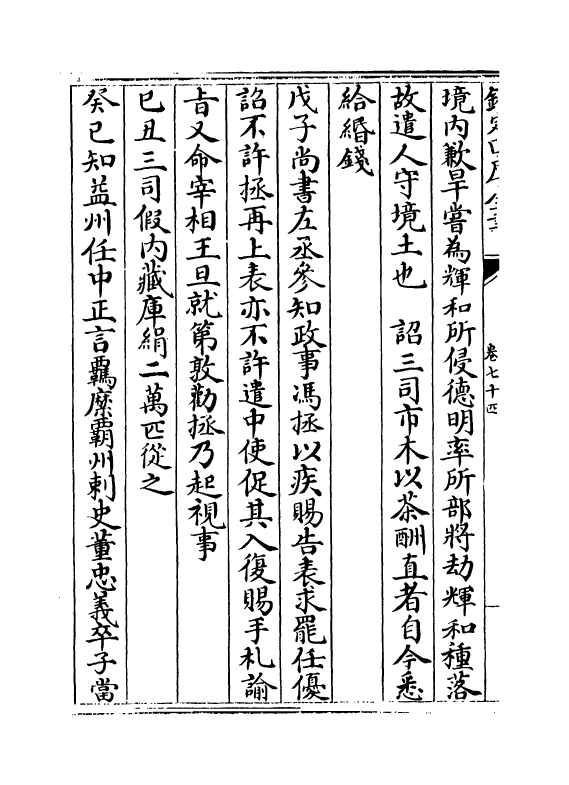 欽定四庫全書
卷七十四
境内歉旱嘗為輝和所侵德明率所部將劫輝和種落
故遣人守境土也　詔三司市木以茶酬直者自今悉
給緡錢
戊子尚書左丞參知政事馮拯以疾賜告表求罷任優
詔不許拯再上表亦不許遣中使促其入復賜手札諭
旨又命宰相王旦就第敦勸拯乃起視事
已丑三司假内藏庫絹二萬匹從之
癸已知益州任中正言羈縻霸州刺史董忠義卒子當